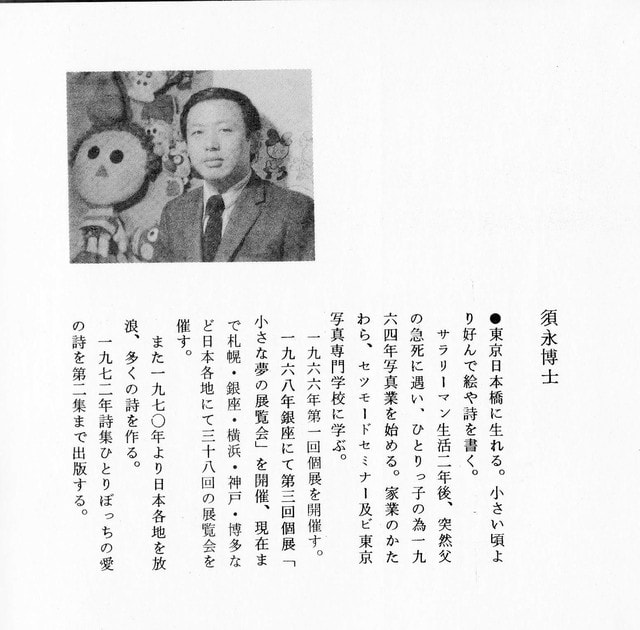 須永博士
●東京日本橋に生れる。小さい頃よ
り好んで絵や詩を書く。
サラリーマン生活二年後、突然父
の急死に遇い、ひとりっ子の為一九
六四年写真業を始める。家業のかた
わら、セツモードセミナー及ビ東京
写真専門学校に学ぶ。
一九六六年第一回個展を開催す。
一九六八年銀座にて第三回個展「
小さな夢の展覧会」を開催、現在ま
で札幌・銀座・横浜・神戸・博多な
ど日本各地にて三十八回の展覧会を
催す。
また一九七〇年より日本各地を放
浪、多くの詩を作る。
一九七二年詩集ひとりぼっちの愛
の詩を第二集まで出版する。